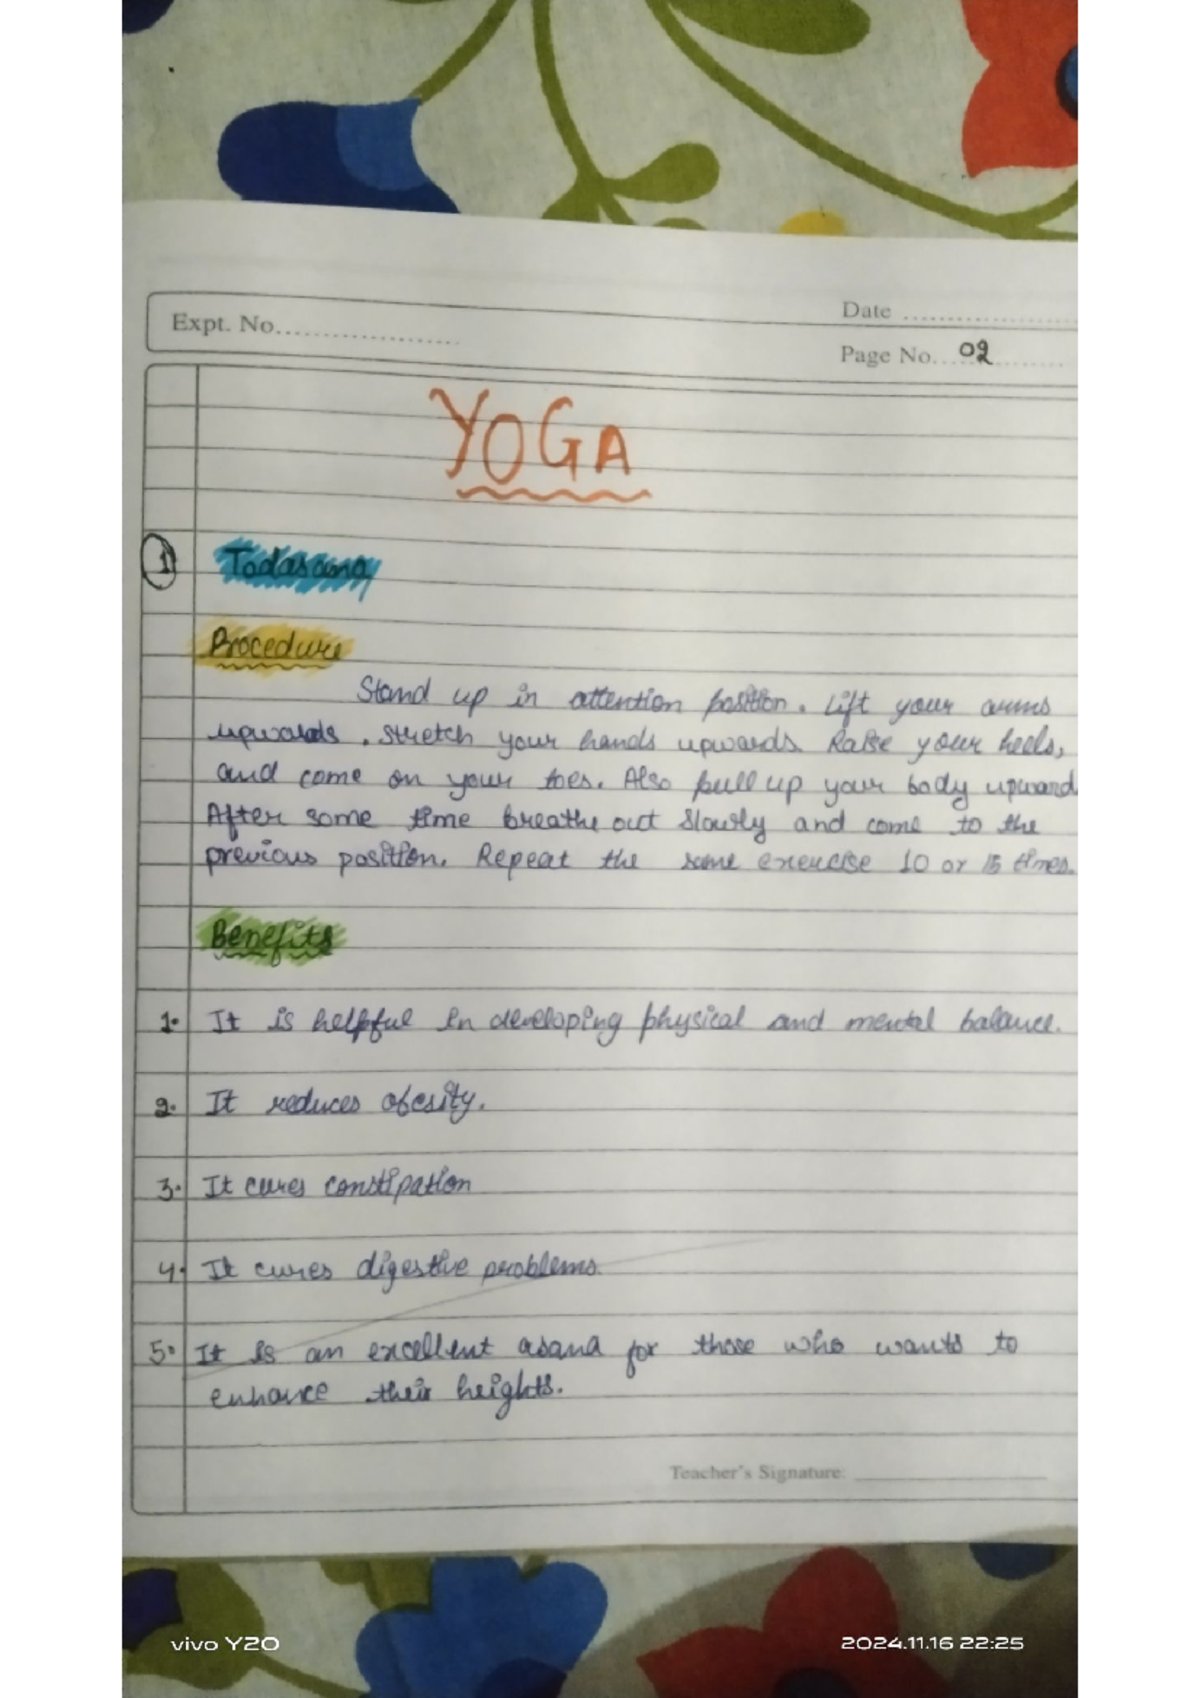 Expt. No.
Date
Page No. 02
YOGA
1 Tadasana
Procedure
Stand up in attention position. Lift your arms
upwards. Stretch your hands upwards. Raise your heels,
and come on your toes. Also pull up your body upward.
After some time breathe out slowly and come to the
previous position. Repeat the same exercise 10 or 15 times.
Benefits
1. It is helpful in developing physical and mental balance.
2. It reduces obesity.
3. It cures constipation
4. It cures digestive problems.
5. It is an excellent asana for those who wants to
enhance their heights.
Teacher's Signature:
vivo Y20
2024.11.16 22:25